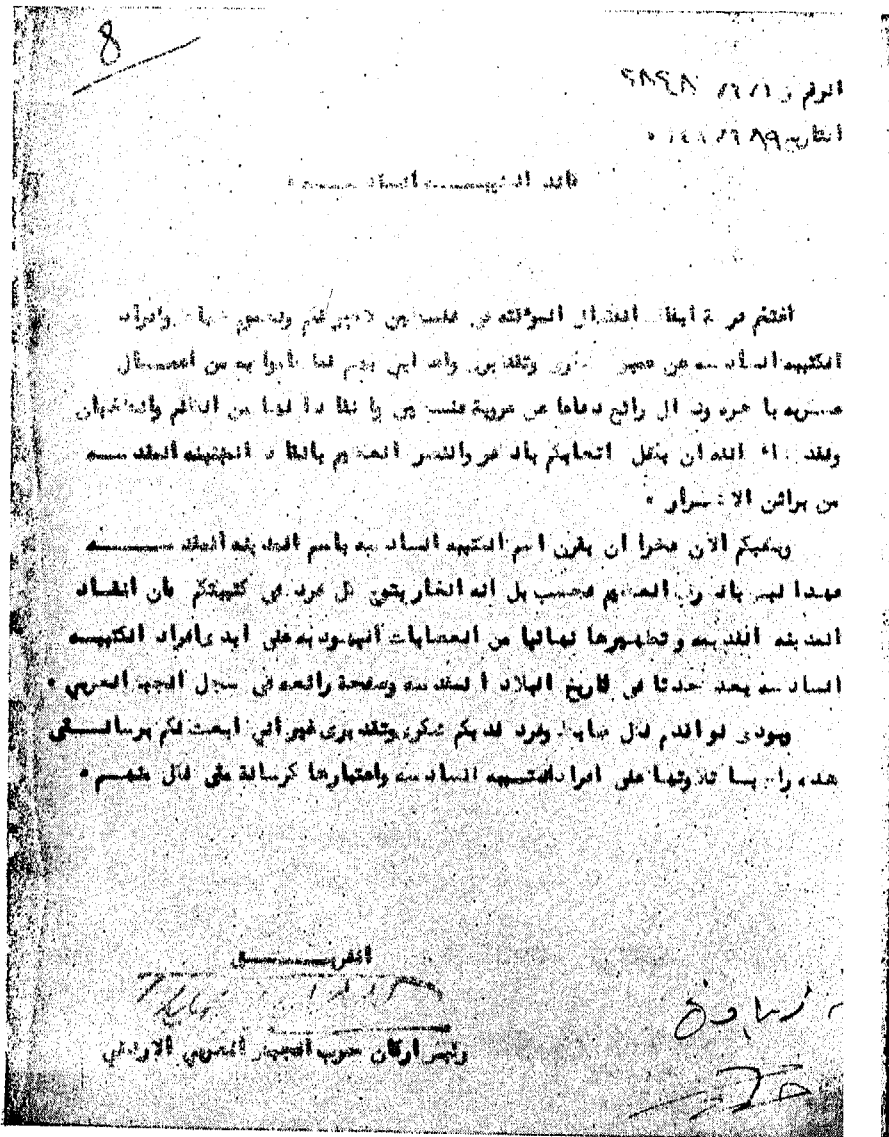 8
الرقم
التاريخ
قائد الكتيبـــه السادســـه
اغتنم فرصة ايقاف القتال المؤقته في فلسطين لاعبر لكم ولجميع ضباط وافراد
الكتيبه السادسه عن عميق شكري وتقديري واعجابي بهم لما قاموا به من اعمـــال
عسكريه باهره ونضال رائع دفاعا عن عروبة فلسطين وانقاذا لها من الظلم والطغيان
ولقد شاء الله ان يكلل اتعابكم بالظفر والنصر العظيم بانقاذ المدينه المقدســـه
من براثن الاشــرار ٠
ويكفيكم الان فخرا ان يقرن اسم الكتيبه السادسه باسم المدينه المقدســـه
فهذا ليس بالشرف العظيم فحسب بل انه الفخار يتوج كل فرد في كتيبتكم بان انقـــاذ
المدينه القديمه وتطهيرها نهائيا من العصابات اليهوديه على ايدي افراد الكتيبـــه
السادسه يعد حدثا في تاريخ البلاد المقدسه وصفحة رائعه في سجل الجهاد العربي ٠
وبودي لو اقدم لكل ضابط وفرد لديكم شكري وتقديري غير اني ابعث لكم برسالـــتي
هذه راجيا تلاوتها على افراد الكتيبه السادسه واعتبارها كرسالة مني لكل منهـم ٠
الفريـــــق
رئيس اركان حرب الجيش العربي الاردني